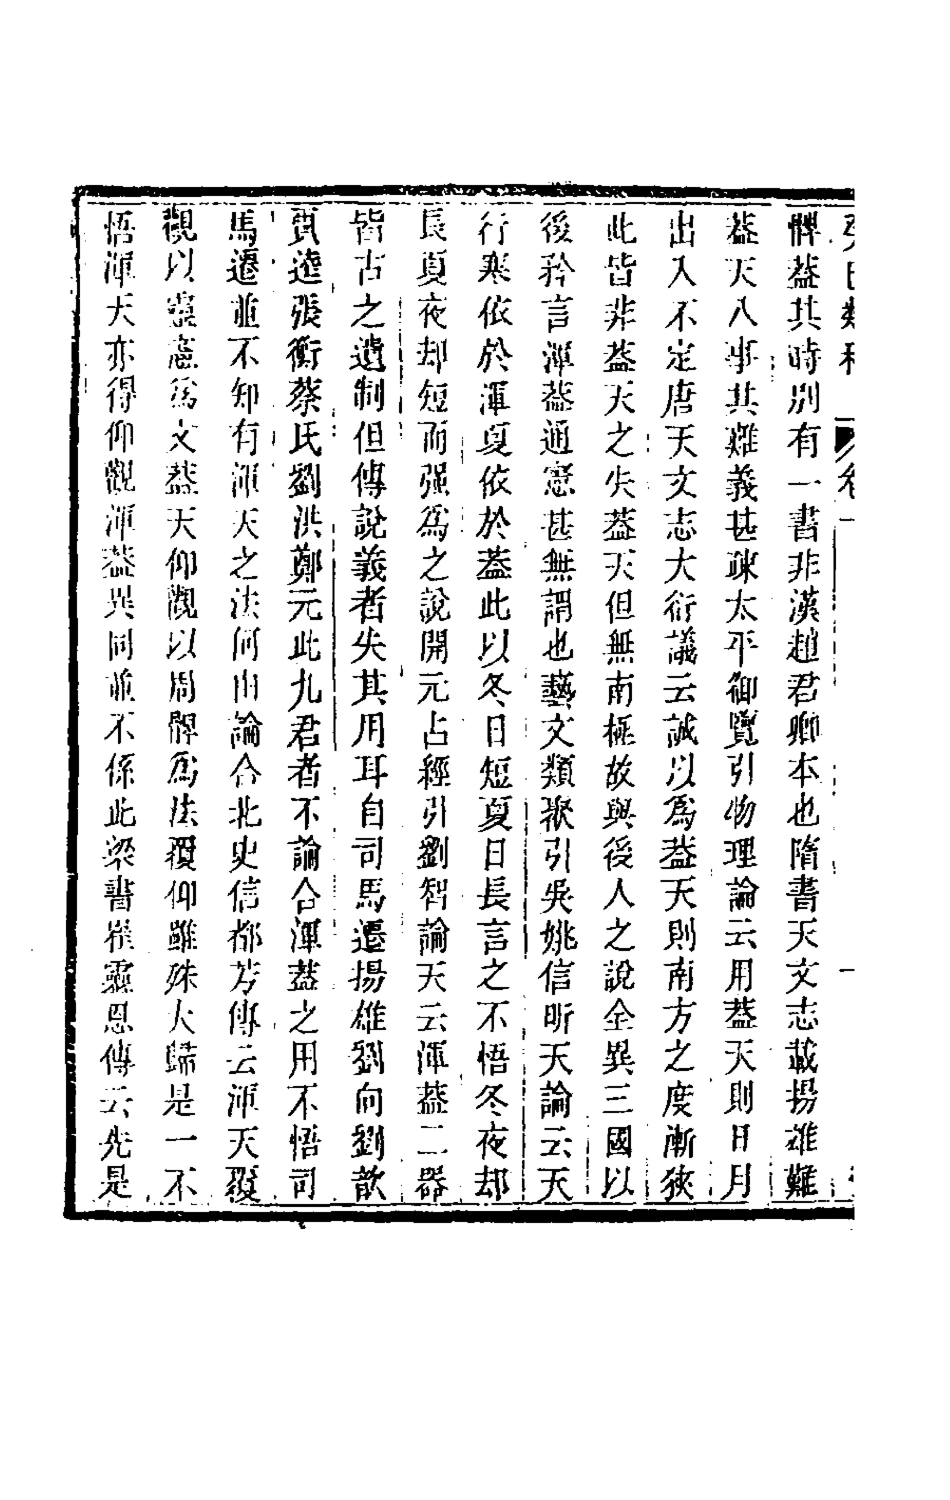 髀葢其時別有一書非漢趙君卿本也隋書天文志載揚雄難
葢天八事其難義甚疎太平御覽引物理論云用葢天則日月
出入不定唐天文志大衍議云誠以爲葢天則南方之度漸狹
此皆非葢天之失葢天但無南極故與後人之說全異三國以
後矜言渾葢通憲甚無謂也藝文類聚引吳姚信昕天論云天
行寒依於渾夏依於葢此以冬日短夏日長言之不悟冬夜却
長夏夜却短而强爲之說開元占經引劉智論天云渾葢二器
皆古之遺制但傳說義者失其用耳自司馬遷揚雄劉向劉歆
賈逵張衡蔡氏劉洪鄭元此九君者不論合渾葢之用不悟司
馬遷並不知有渾天之法何由論合北史信都芳傳云渾天覆
觀以靈憲爲文葢天仰觀以周髀爲法覆仰雖殊大歸是一不
悟渾天亦得仰觀渾葢異同並不係此梁書崔靈恩傳云先是